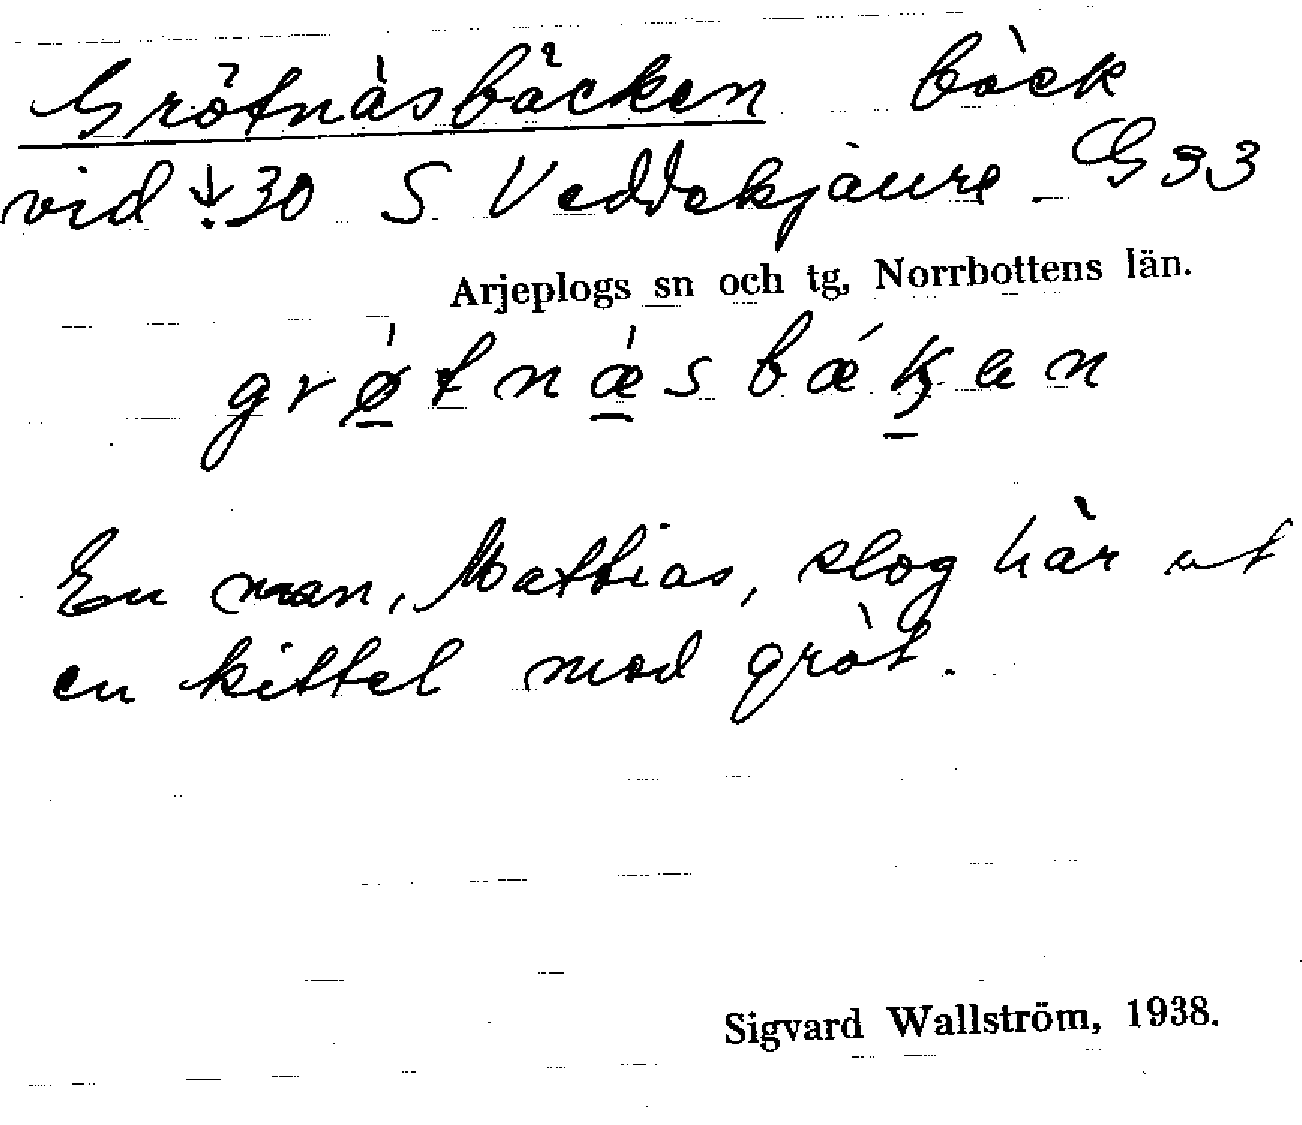 Grötnäsbäcken bäck
vid ↓30 S Veddekjaure G33
Arjeplogs sn och tg, Norrbottens län.
grǿ̱tnǽ̱sbǽḵen
En man, Mattias, slog här ut
en kittel med gröt.
Sigvard Wallström, 1938.